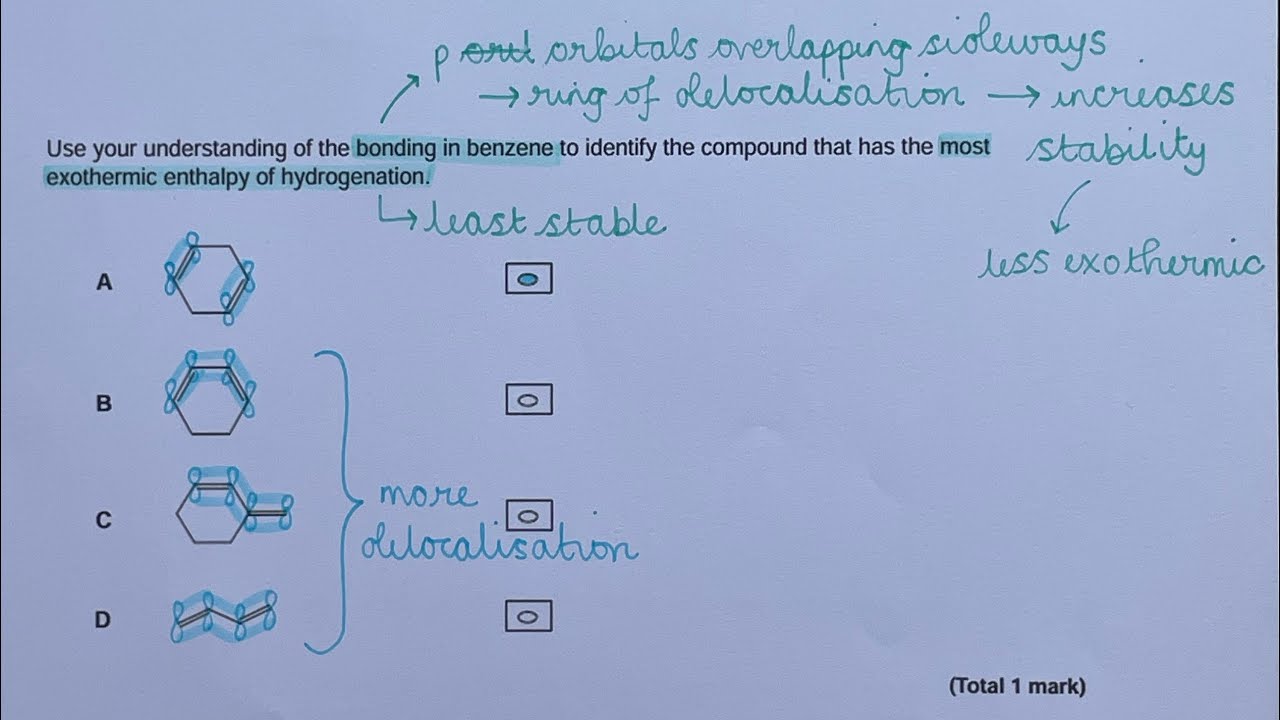 p orbitals overlapping sideways
→ ring of delocalisation → increases
stability
less exothermic
Use your understanding of the bonding in benzene to identify the compound that has the most
exothermic enthalpy of hydrogenation.
least stable
A
B
C
more
delocalisation
D
(Total 1 mark)